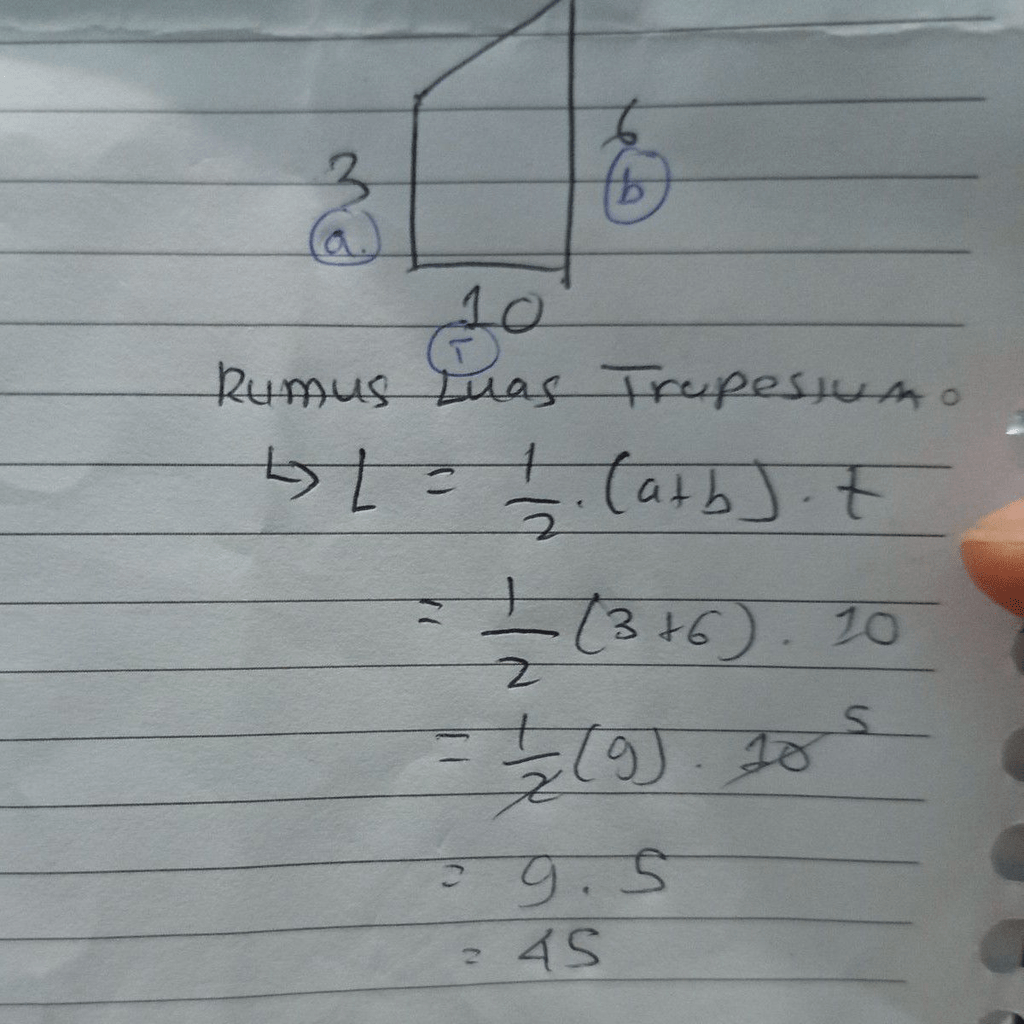 3
6
a.
b
10
T
Rumus Luas Trapesium.
↳ L = 1/2 . (a+b) . t
= 1/2 (3+6) . 10
= 1/2 (9) . 10 5
= 9 . 5
= 45